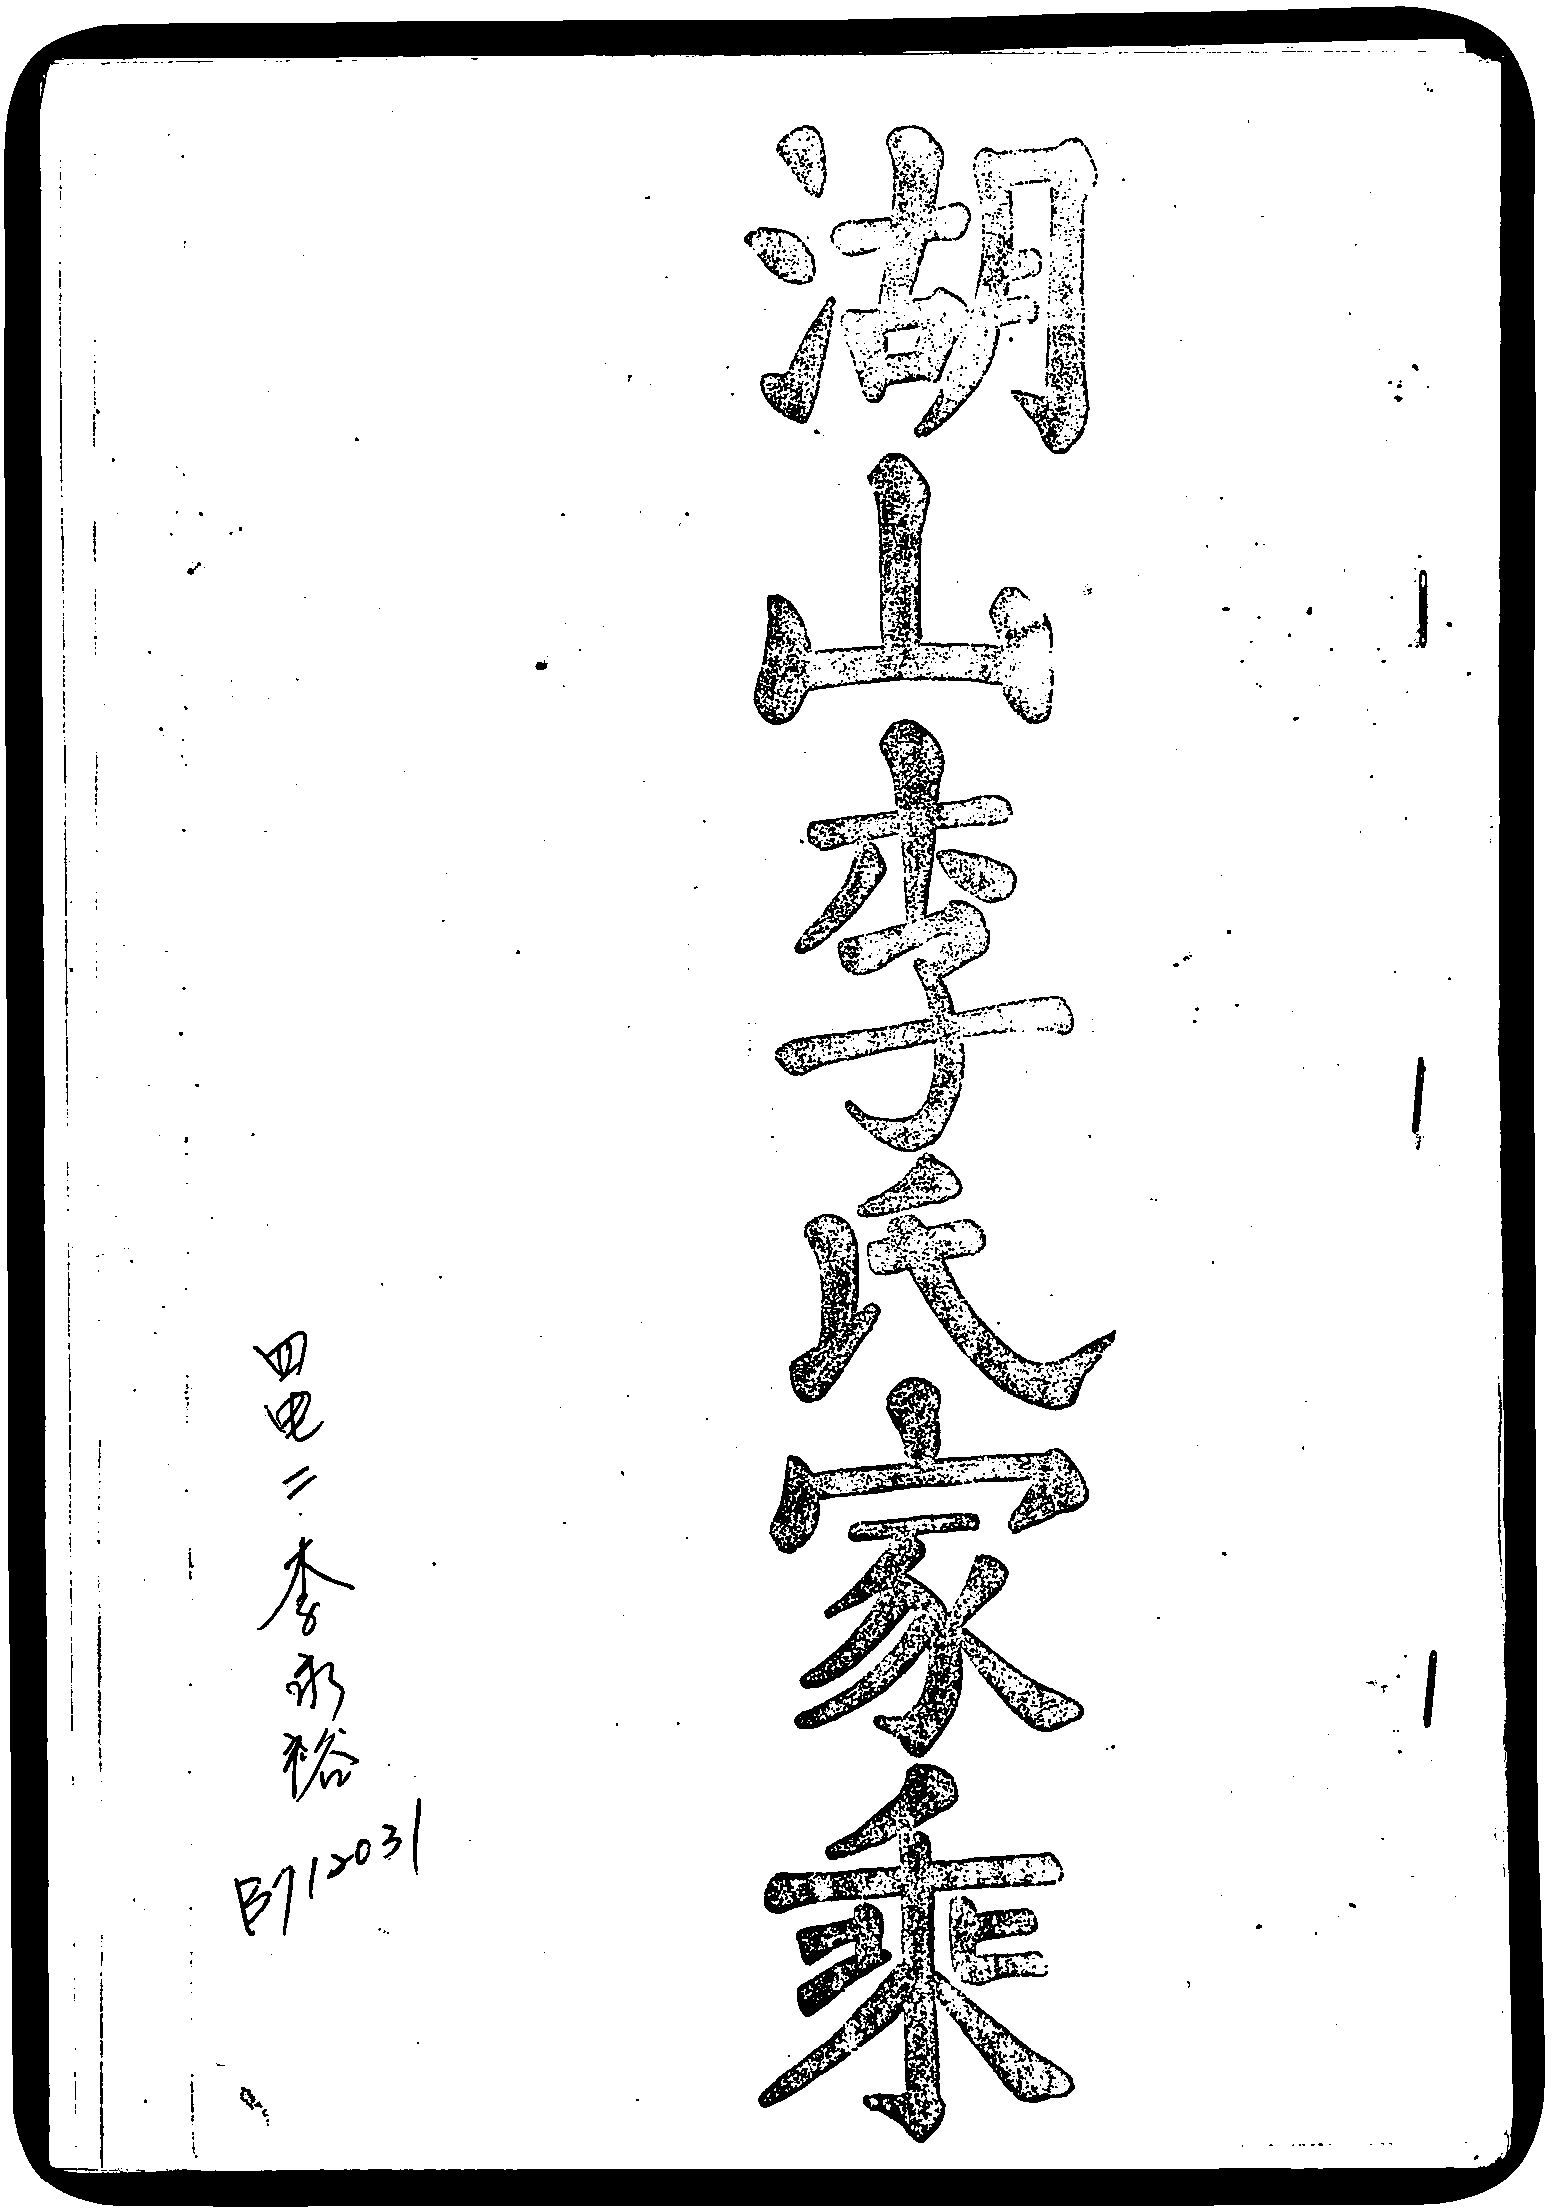 湖山李氏家乘
四电二 李永裕 B712031